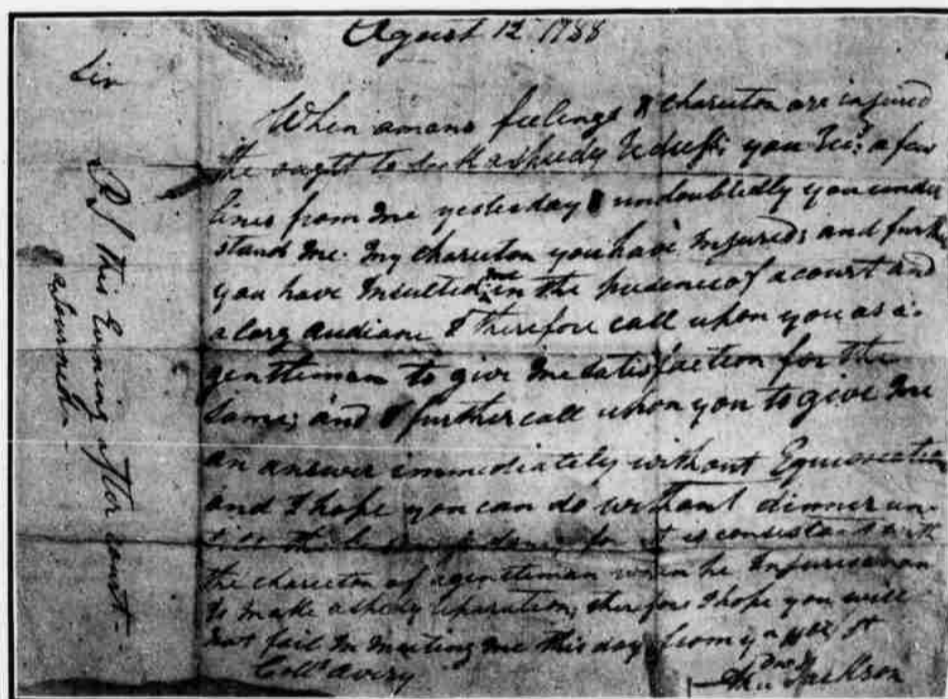 Agust 12th 1788
Sir
When amans feelings & charector are injured
the ought to seek aspeedy redress; you recd. a few
lines from me yesterday & undoubtedly you under
stand me. My charector you have Injured; and furth
you have Insulted me in the presence of a court and
a larg audiane I therefore call upon you as a
gentleman to give me satisfaction for the
Same; and I further call upon you to give me
an answer immediately without Equivocation
and I hope you can do without dinner un
till the business done; for it is consistant with
the charector of agentleman when he Injures aman
to make aspedy reparation; therefore I hope you will
not fail in meeting me this day from yr obt st
Collo. Avery
Andw. Jackson
PS this Evening after court
adjourned